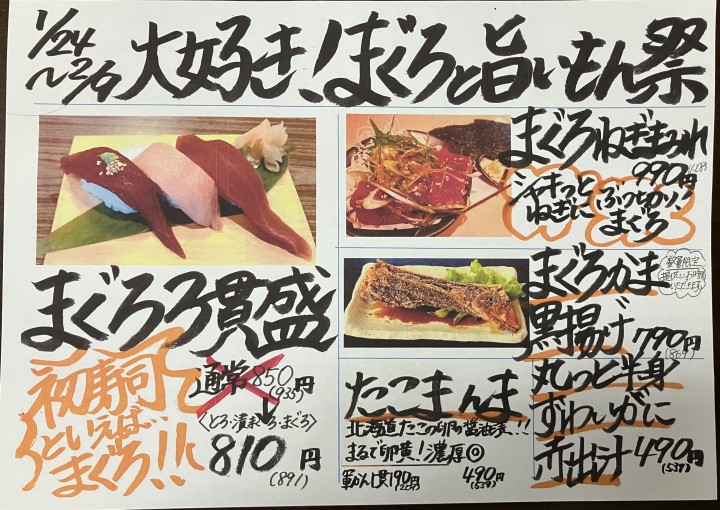 1/24
〜2/9
大好き!まぐろと旨いもん祭
まぐろねぎまみれ
990円
シャキっと
ねぎに
ぶつ切り!
まぐろ
まぐろ3貫盛
初寿司で
といえば
まぐろ!!
通常850円
(935)
〈とろ・漬まぐろ・まぐろ〉
810円
(891)
まぐろかま
数量限定
黒揚げ 790円
(869)
たこまんま
北海道たこの卵の醤油漬!!
まるで卵黄!濃厚◎
軍かん1貫190円
(209)
490円
(539)
丸っと半身
ずわいがに
赤出汁 490円
(539)